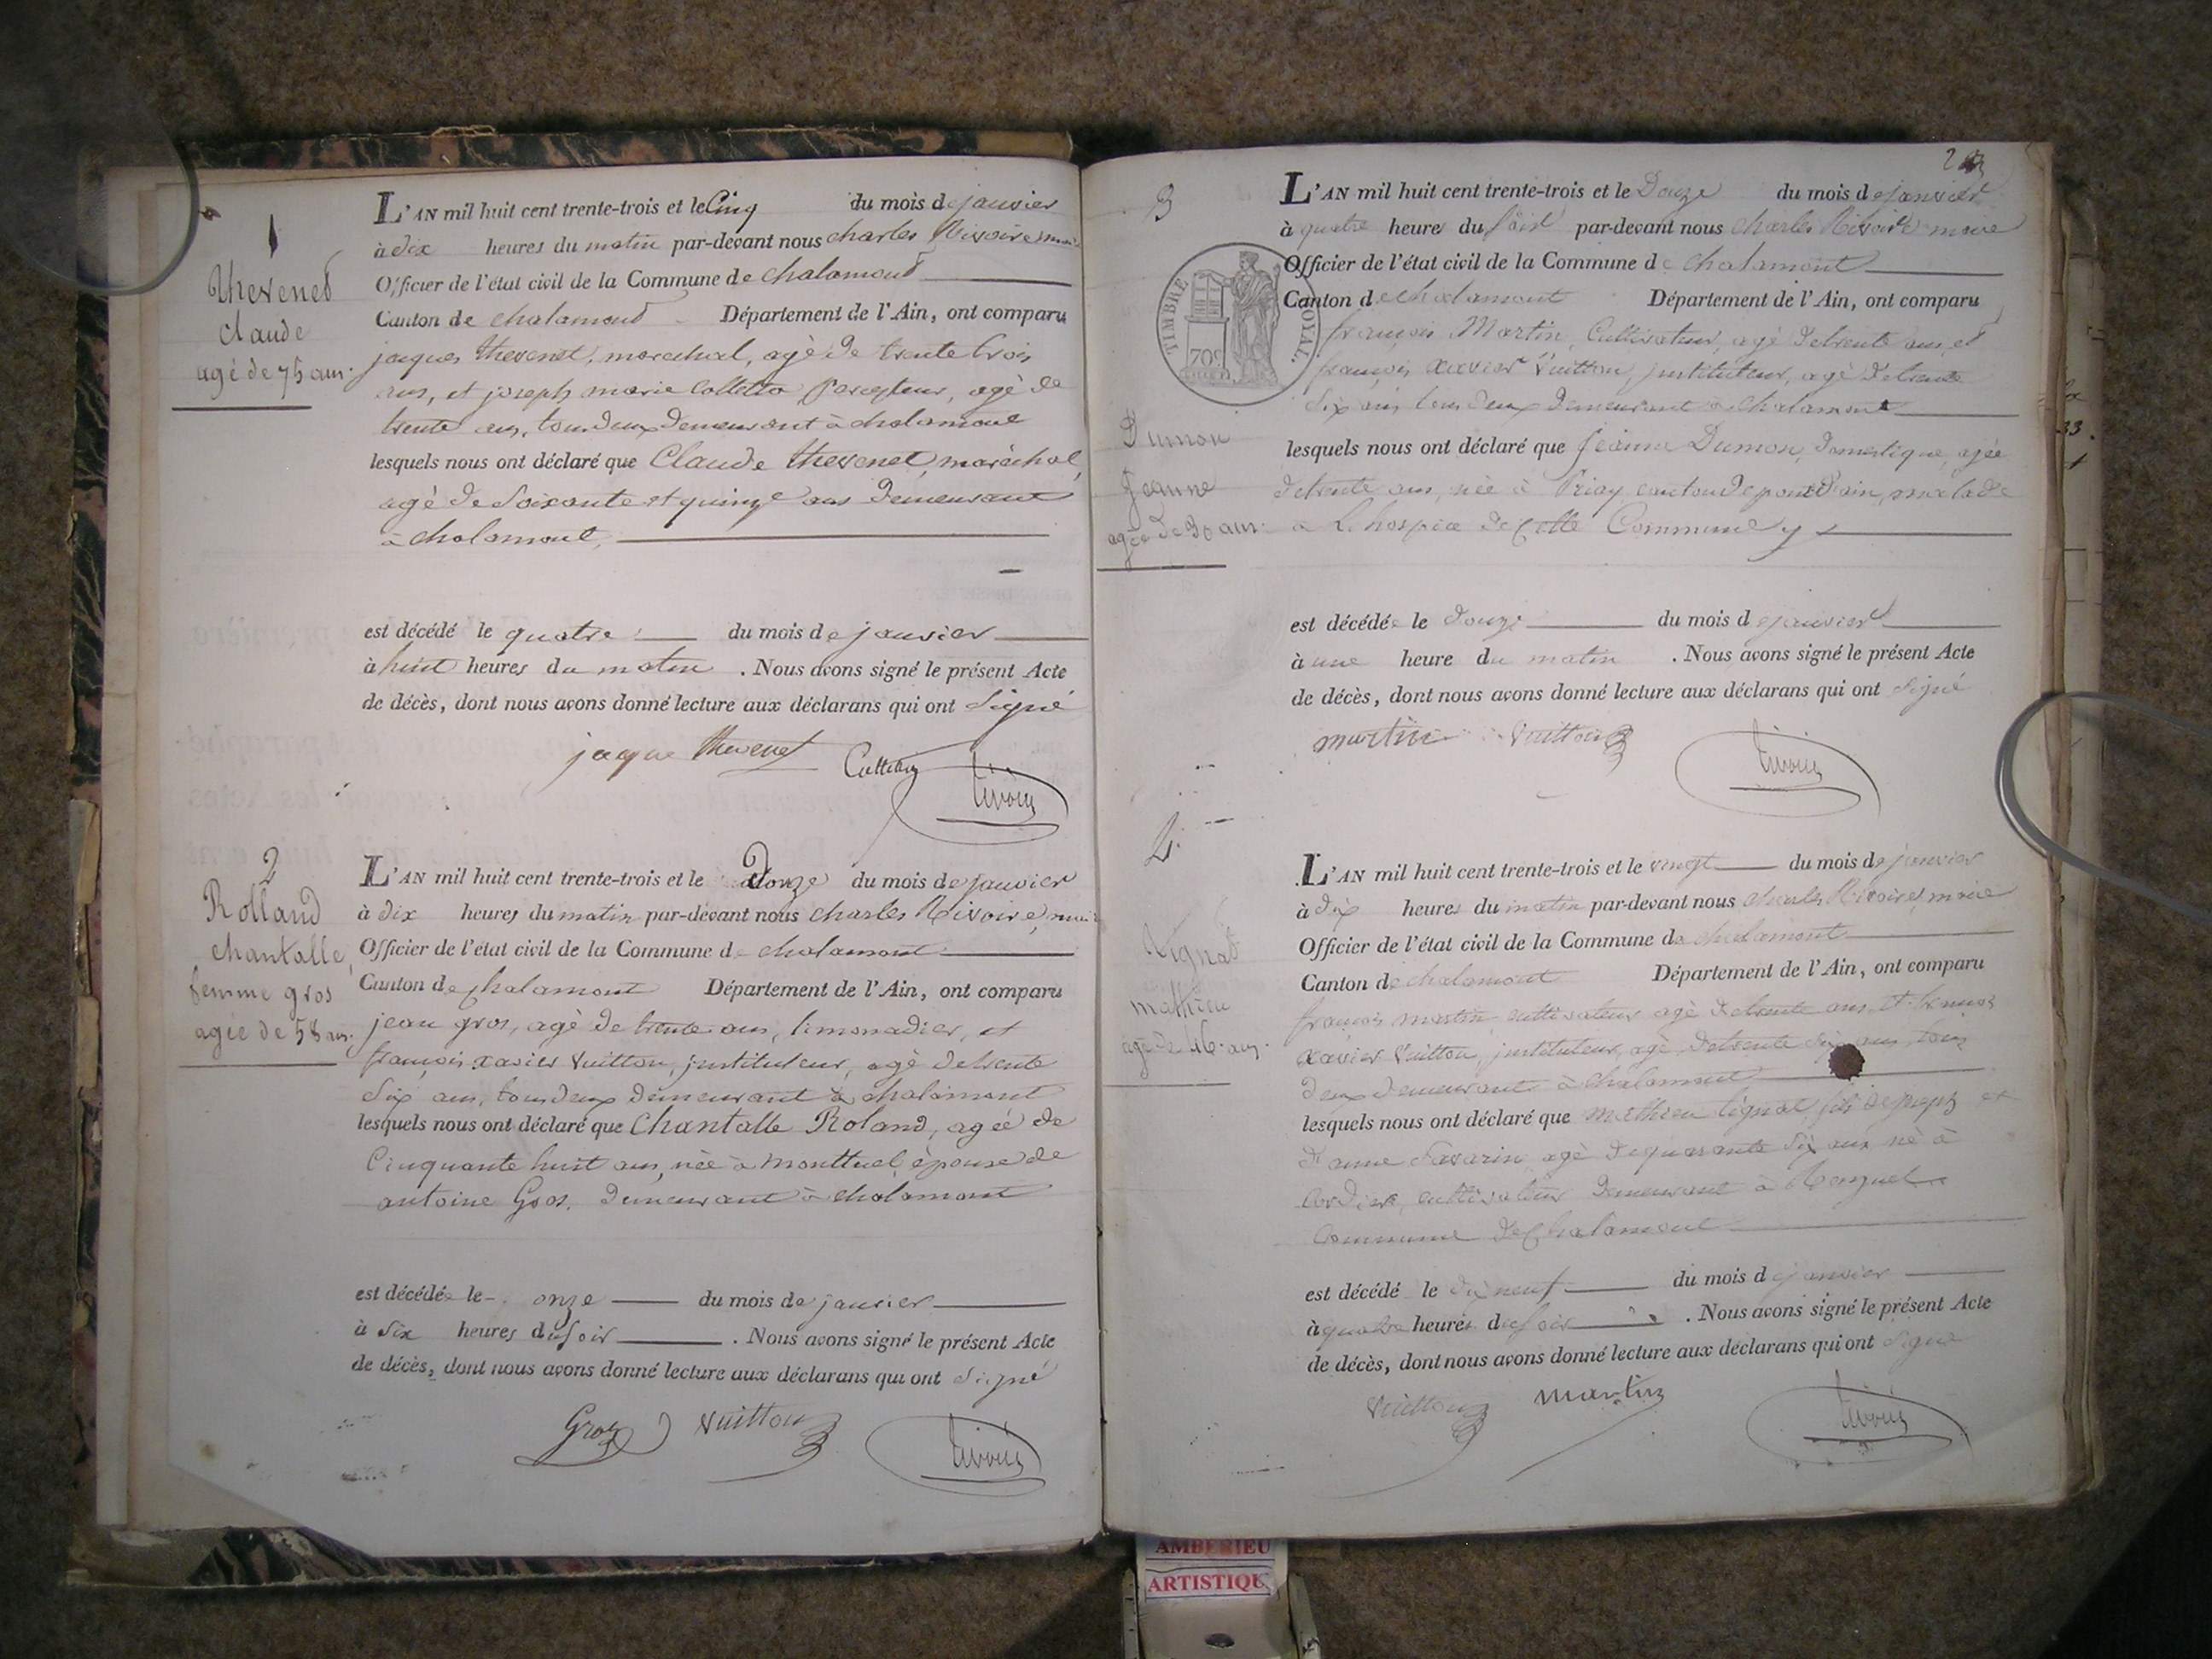 1
Thevenet
Claude
agé de 75 ans.
L'AN mil huit cent trente-trois et le Cinq du mois de janvier
à dix heures du matin par-devant nous charles Rivoire, mai
Officier de l'état civil de la Commune de chalamont
Canton de chalamont Département de l'Ain, ont comparu
jacques thevenet, marechal, agé de trente trois
ans, et joseph marie Percepteur, agé de
trente ans, tous deux demeurant à chalamont
lesquels nous ont déclaré que Claude thevenet, maréchal,
agé de Soixante et quinze ans demeurant
à chalamont,
est décédé le quatre du mois de janvier
à huit heures du matin . Nous avons signé le présent Acte
de décès, dont nous avons donné lecture aux déclarans qui ont Signé
jaque thevenet
2
Rolland
chantalle,
femme gros
agée de 58 ans.
L'AN mil huit cent trente-trois et le Douze du mois de janvier
à dix heures du matin par-devant nous charles Rivoire, mai
Officier de l'état civil de la Commune de chalamont
Canton de chalamont Département de l'Ain, ont comparu
jean gros, agé de trente ans, limonadier, et
françois xavier Vuitton, jnstituteur, agé de trente
Six ans, tous deux demeurant à chalamont
lesquels nous ont déclaré que Chantalle Roland, agée de
Cinquante huit ans, née à montluel, épouse de
antoine Gros, demeurant à chalamont
est décédée le onze du mois de janvier
à Six heures du soir . Nous avons signé le présent Acte
de décès, dont nous avons donné lecture aux déclarans qui ont Signé
Gros Vuitton
2
3
TIMBRE ROYAL.
70c
Dumon
Jeanne
agée de 30 ans.
L'AN mil huit cent trente-trois et le Douze du mois de janvier
à quatre heures du soir par-devant nous charles Rivoire maire
Officier de l'état civil de la Commune de chalamont
Canton de chalamont Département de l'Ain, ont comparu
françois Martin, Cultivateur, agé de trente ans, et
françois xavier Vuitton, jnstituteur, agé de trente
Six ans tous deux demeurant à chalamont
lesquels nous ont déclaré que Jeanne Dumon, domestique, agée
de trente ans, née à Priay, canton de pont d'ain, malade
à L'hospice de Cette Commune y
est décédée le douze du mois de janvier
à une heure du matin . Nous avons signé le présent Acte
de décès, dont nous avons donné lecture aux déclarans qui ont Signé
martin Vuitton
4.
mathieu
agé de 46 ans.
L'AN mil huit cent trente-trois et le vingt du mois de janvier
à dix heures du matin par-devant nous charles Rivoire, maire
Officier de l'état civil de la Commune de chalamont
Canton de chalamont Département de l'Ain, ont comparu
françois martin cultivateur agé de trente ans, et françois
xavier Vuitton, jnstituteur, agé de trente Six ans, tous
deux demeurant à chalamont
lesquels nous ont déclaré que mathieu fils de joseph et
d'anne Savarin agé de quarante Six ans né à
cultivateur demeurant à
Commune de Chalamont
est décédé le dix neuf du mois de janvier
à quatre heures du soir . Nous avons signé le présent Acte
de décès, dont nous avons donné lecture aux déclarans qui ont Signé
Vuitton martin
AMBERIEU
ARTISTIQUE